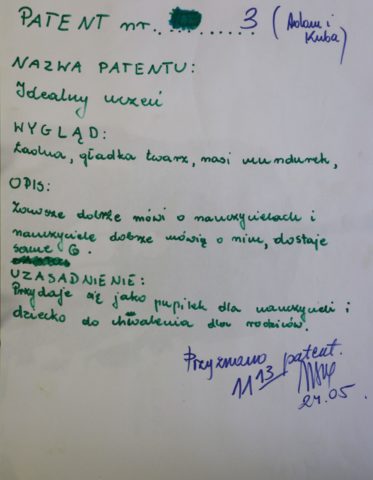 PATENT nr. .......... 3 (Adam i Kuba)
NAZWA PATENTU:
Idealny uczeń
WYGLĄD:
Ładna, gładka twarz, nosi mundurek,
OPIS:
Zawsze dobrze mówi o nauczycielach i
nauczyciele dobrze mówią o nim, dostaje
same 6.
UZASADNIENIE:
Przydaje się jako pupilek dla nauczycieli i
dziecko do chwalenia dla rodziców.
Przyznano patent.
11 13
24.05.